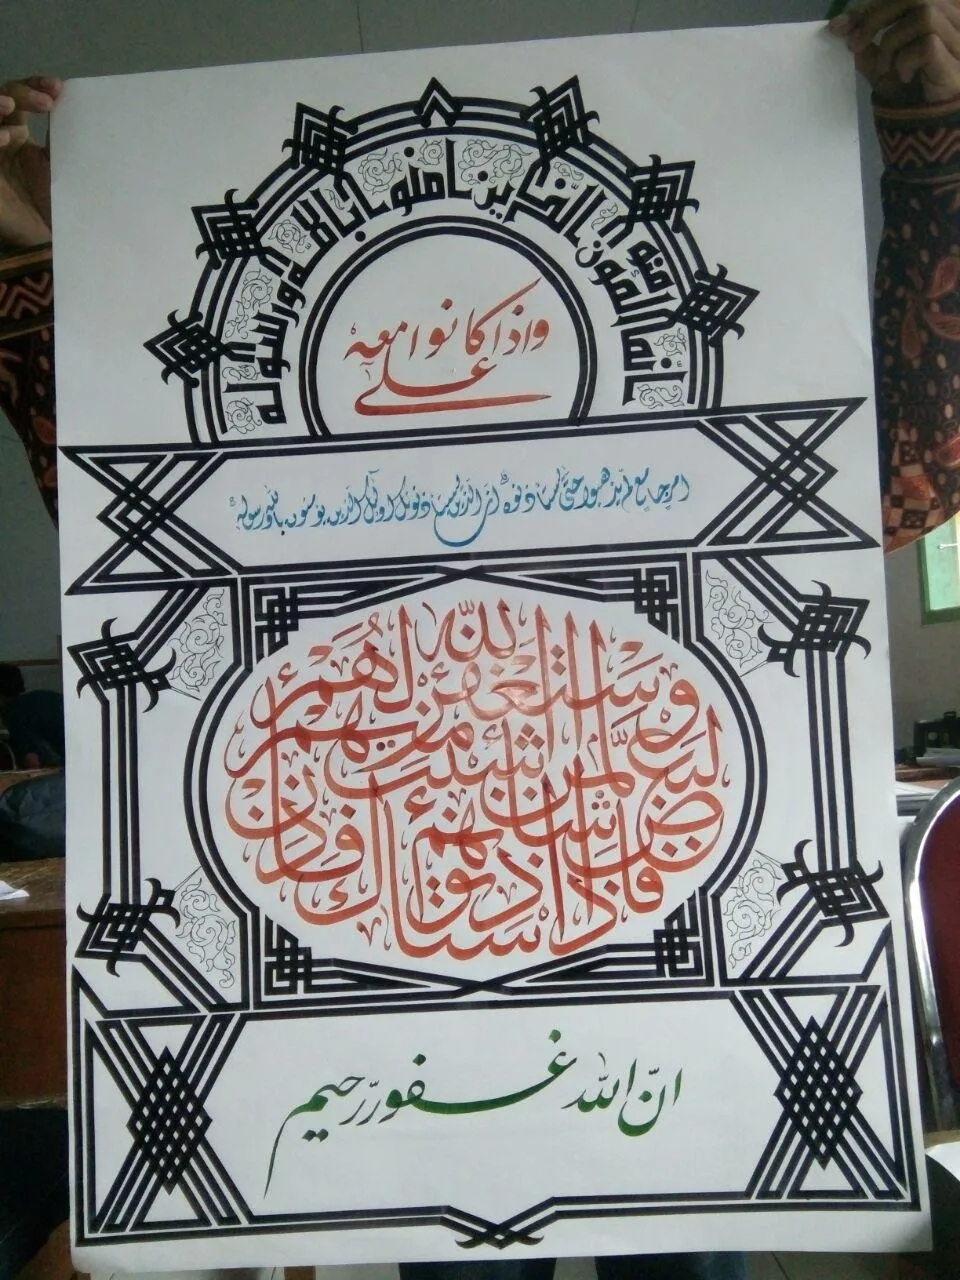 إنما المؤمنون الذين امنوا بالله ورسوله
واذا كانوا معه
على
امر جامع لم يذهبوا حتى يستاذنوه ان الذين يستاذنونك اولئك الذين يؤمنون بالله ورسوله
فاذا استاذنوك لبعض شانهم فاذن لمن شئت منهم واستغفر لهم الله
انّ الله غفور رّحيم